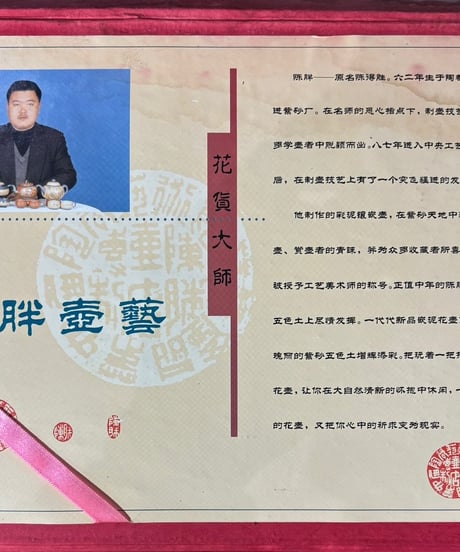 花貨大師
胖壺藝
陈胖——原名陈浔胜。六二年生于陶都
进紫砂厂。在名师的悉心指点下，制壶技艺
多学壶者中脱颖而出。八七年进入中央工艺
后，在制壶技艺上有了一个突飞猛进的发
他制作的彩泥镶嵌壶，在紫砂天地中
壶、赏壶者的青睐，并为众多收藏者所喜
被授予工艺美术师的称号。正值中年的陈
五色土上尽情发挥。一代代新品嵌泥花壶
瑰丽的紫砂五色土增辉添彩。把玩着一把
花壶，让你在大自然清新的怀抱中休闲，一
的花壶，又把你心中的祈求变为现实。